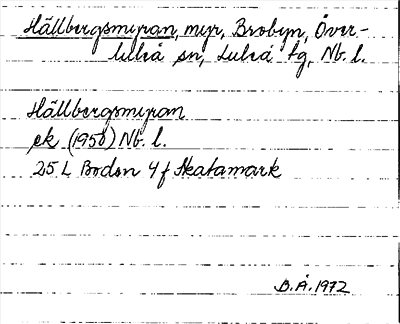 Hällbergsmyran, myr, Brobyn, Över-
luleå sn, Luleå tg, Nb. l.
Hällbergsmyran
ek (1950) Nb. l.
25 L Boden 4 f Skatamark
D.Å. 1972